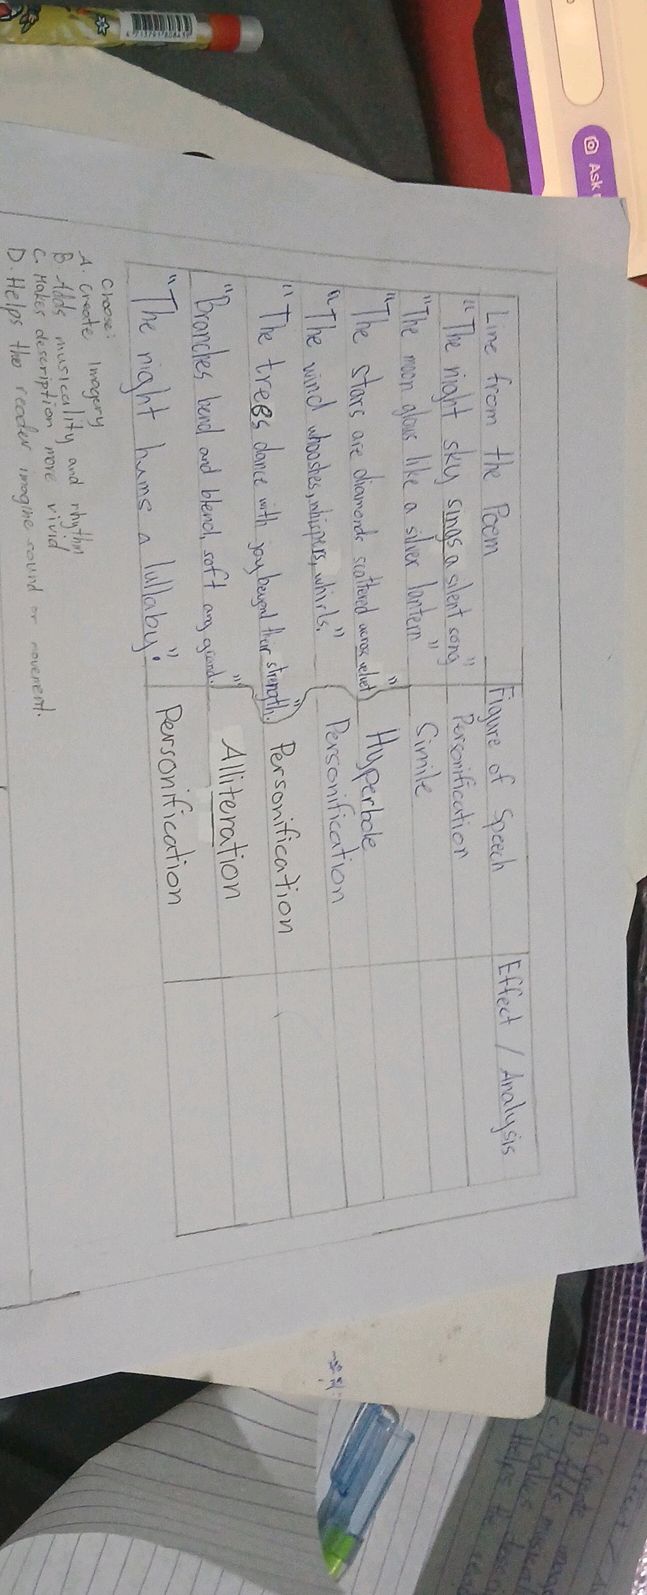 Line from the Poem | Figure of Speech | Effect / Analysis
"The night sky sings a silent song" | Personification
"The moon glows like a silver lantern" | Simile
"The stars are diamonds scattered across velvet" | Hyperbole
"The wind whooshes, whispers, whirls." | Personification
"The trees dance with joy beyond their strength." | Personification
"Branches bend and blend, soft and grand." | Alliteration
"The night hums a lullaby." | Personification
Choose:
A. Create Imagery
B. Adds musicality and rhythm
C. Makes description more vivid
D. Helps the reader imagine sound or movement.
Ask